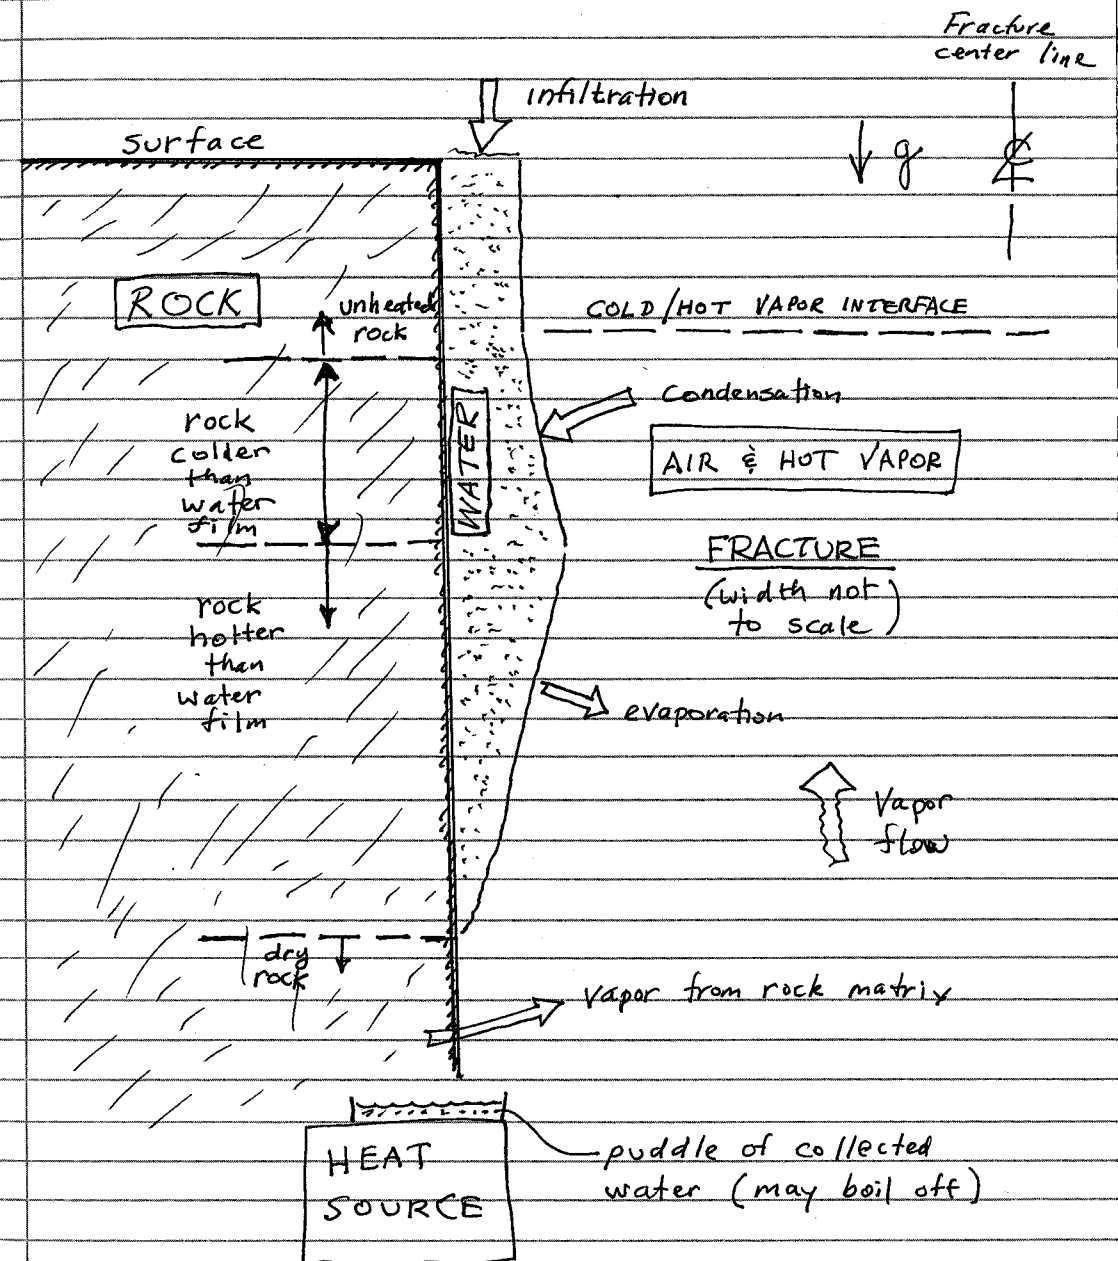 Fracture
center line
infiltration
surface
g
℄
ROCK
unheated
rock
COLD/HOT VAPOR INTERFACE
condensation
rock
colder
than
water
film
WATER
AIR & HOT VAPOR
FRACTURE
(width not
to scale)
rock
hotter
than
water
film
evaporation
Vapor
flow
dry
rock
vapor from rock matrix
HEAT
SOURCE
puddle of collected
water (may boil off)